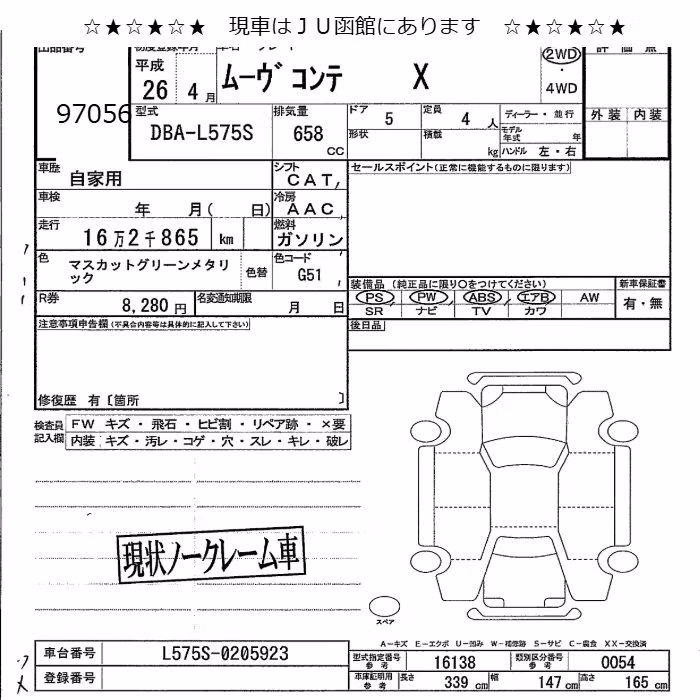 ☆★☆★☆★ 現車はＪＵ函館にあります ☆★☆★☆★
出品番号 初度登録年月 車名・グレード 評価点
平成 26 4 月 ムーヴ コンテ X 2WD ・ 4WD
97056 型式 DBA-L575S 排気量 658 CC ドア 5 定員 4 人 ディーラー・並行 外装 内装
形状 積載 kg モデル年式 年 ハンドル 左・右
車歴 自家用 シフト CAT, セールスポイント(正常に機能するものに限ります)
車検 年 月( 日) 冷房 AAC,
走行 16万2千865 km 燃料 ガソリン
色 マスカットグリーンメタリック 色替 色コード G51
装備品 (純正品に限り○をつけてください) 新車保証書
PS PW ABS エアB AW 有・無
SR ナビ TV カワ
R券 8,280 円 名変通知期限 月 日
注意事項申告欄(不具合内容等は具体的に記入して下さい) 後日品
修復歴 有〔箇所 〕
検査員記入欄 FW キズ・飛石・ヒビ割・リペア跡・×要
内装 キズ・汚レ・コゲ・穴・スレ・キレ・破レ
現状ノークレーム車
スペア
A－キズ E－エクボ U－凹み W－補修跡 S－サビ C－腐食 XX－交換済
車台番号 L575S-0205923 型式指定番号参考 16138 類別区分番号参考 0054
登録番号 車庫証明用参考 長さ 339 cm 幅 147 cm 高さ 165 cm